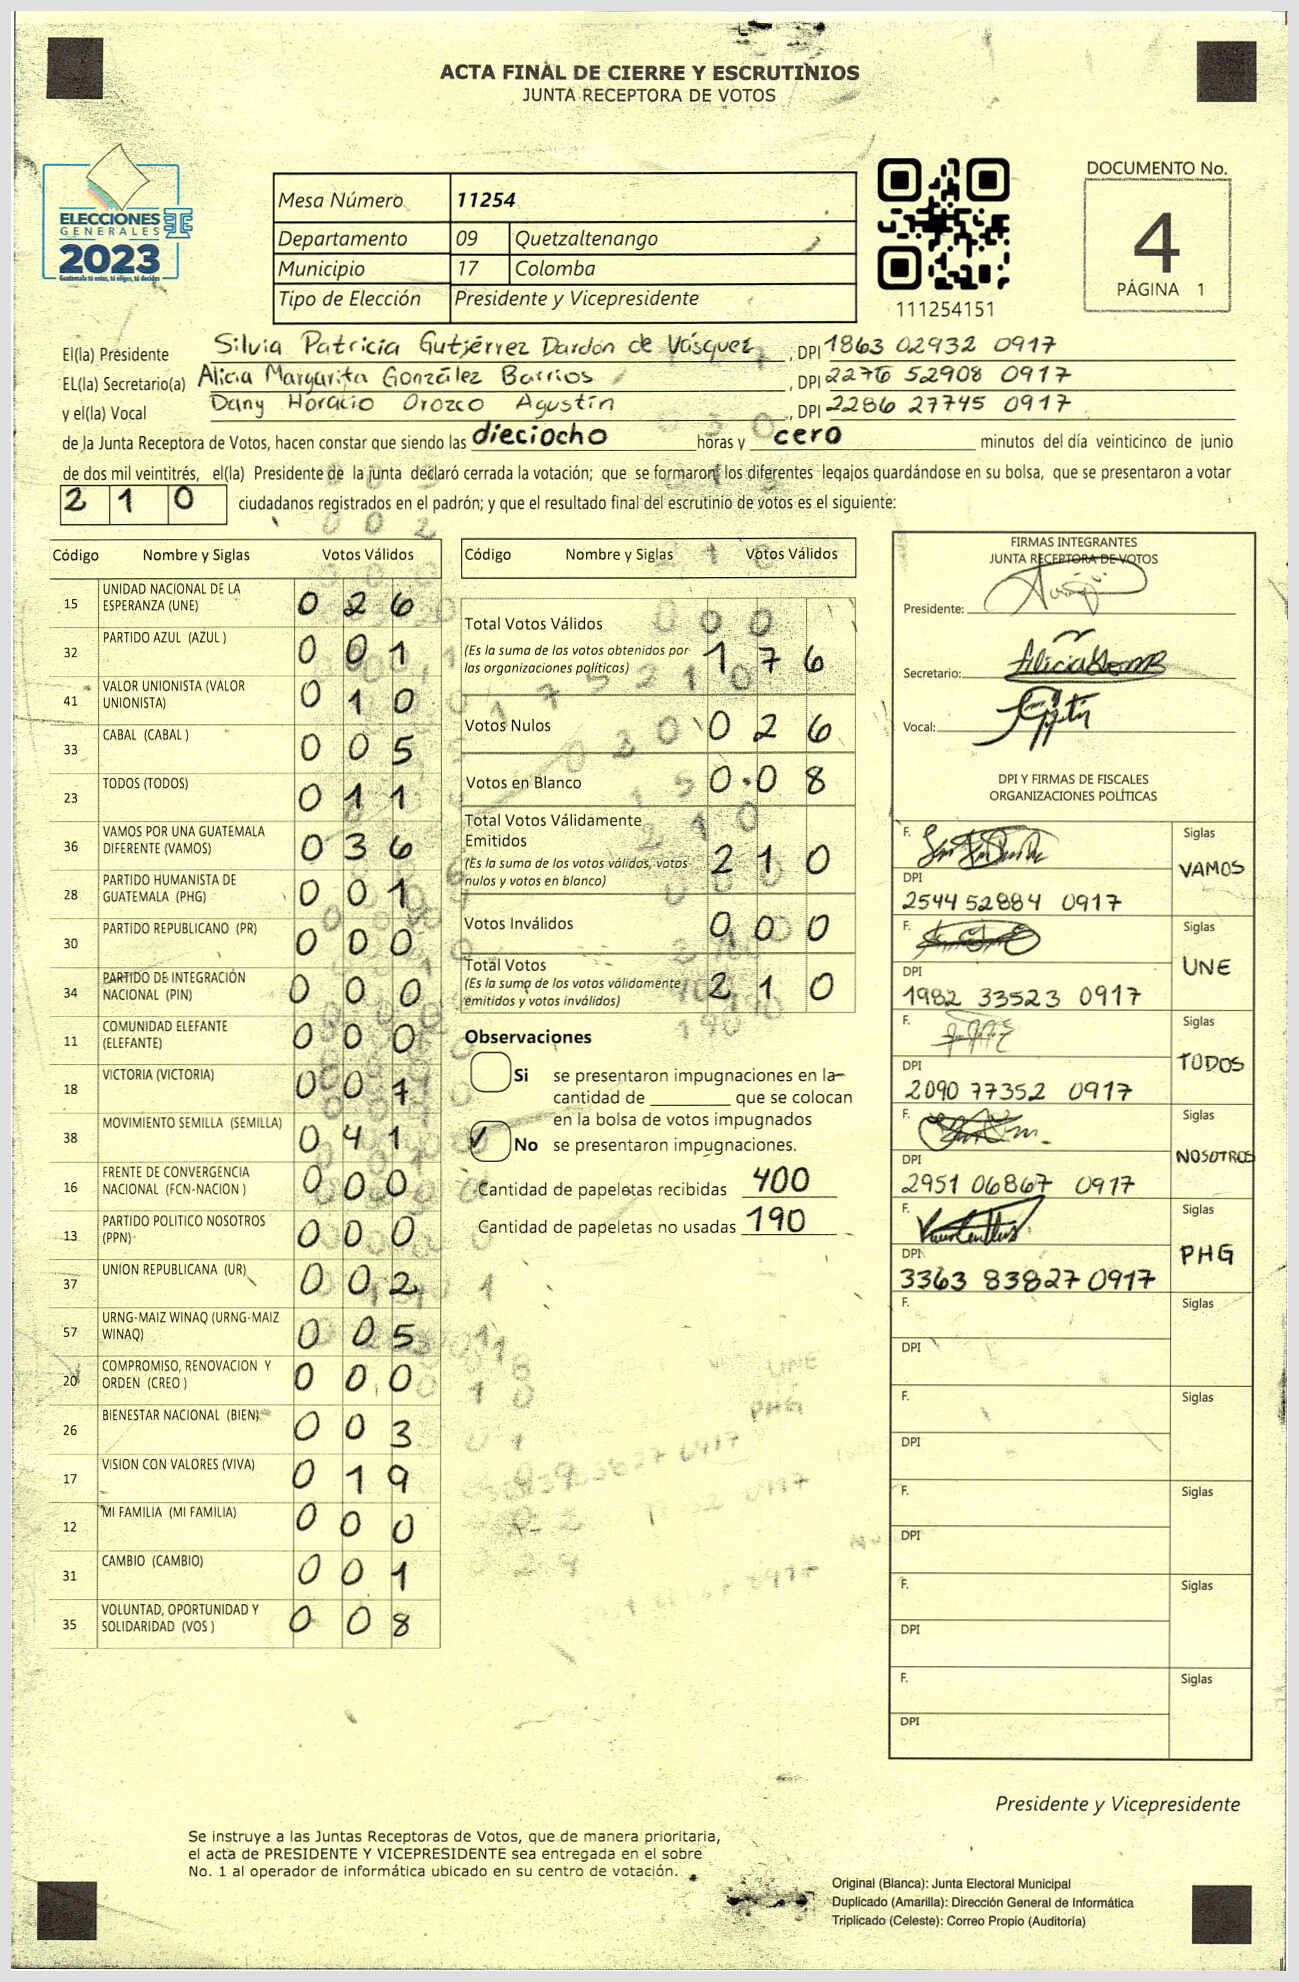 ACTA FINAL DE CIERRE Y ESCRUTINIOS
JUNTA RECEPTORA DE VOTOS
ELECCIONES
GENERALES
2023
Guatemala tú votas, tú eliges, tú decides
Mesa Número 11254
Departamento 09 Quetzaltenango
Municipio 17 Colomba
Tipo de Elección Presidente y Vicepresidente
111254151
DOCUMENTO No.
4
PÁGINA 1
El(la) Presidente Silvia Patricia Gutiérrez Dardón de Vásquez, DPI 1863 02932 0917
EL(la) Secretario(a) Alicia Margarita González Barrios, DPI 2276 52908 0917
y el(la) Vocal Dany Horacio Orozco Agustín, DPI 2286 27745 0917
de la Junta Receptora de Votos, hacen constar que siendo las dieciocho horas y cero minutos del día veinticinco de junio
de dos mil veintitrés, el(la) Presidente de la junta declaró cerrada la votación; que se formaron los diferentes legajos guardándose en su bolsa, que se presentaron a votar
210 ciudadanos registrados en el padrón; y que el resultado final del escrutinio de votos es el siguiente:
Código Nombre y Siglas Votos Válidos
15 UNIDAD NACIONAL DE LA ESPERANZA (UNE) 026
32 PARTIDO AZUL (AZUL ) 001
41 VALOR UNIONISTA (VALOR UNIONISTA) 010
33 CABAL (CABAL ) 005
23 TODOS (TODOS) 011
36 VAMOS POR UNA GUATEMALA DIFERENTE (VAMOS) 036
28 PARTIDO HUMANISTA DE GUATEMALA (PHG) 001
30 PARTIDO REPUBLICANO (PR) 000
34 PARTIDO DE INTEGRACIÓN NACIONAL (PIN) 000
11 COMUNIDAD ELEFANTE (ELEFANTE) 000
18 VICTORIA (VICTORIA) 007
38 MOVIMIENTO SEMILLA (SEMILLA) 041
16 FRENTE DE CONVERGENCIA NACIONAL (FCN-NACION ) 000
13 PARTIDO POLITICO NOSOTROS (PPN) 000
37 UNION REPUBLICANA (UR) 002
57 URNG-MAIZ WINAQ (URNG-MAIZ WINAQ) 005
20 COMPROMISO, RENOVACION Y ORDEN (CREO ) 000
26 BIENESTAR NACIONAL (BIEN) 003
17 VISION CON VALORES (VIVA) 019
12 MI FAMILIA (MI FAMILIA) 000
31 CAMBIO (CAMBIO) 001
35 VOLUNTAD, OPORTUNIDAD Y SOLIDARIDAD (VOS ) 008
Código Nombre y Siglas Votos Válidos
Total Votos Válidos
(Es la suma de los votos obtenidos por las organizaciones políticas) 176
Votos Nulos 026
Votos en Blanco 008
Total Votos Válidamente Emitidos
(Es la suma de los votos válidos, votos nulos y votos en blanco) 210
Votos Inválidos 000
Total Votos
(Es la suma de los votos válidamente emitidos y votos inválidos) 210
Observaciones
Si se presentaron impugnaciones en la
cantidad de ________ que se colocan
en la bolsa de votos impugnados
✓ No se presentaron impugnaciones.
Cantidad de papeletas recibidas 400
Cantidad de papeletas no usadas 190
FIRMAS INTEGRANTES
JUNTA RECEPTORA DE VOTOS
Presidente:
Secretario:
Vocal:
DPI Y FIRMAS DE FISCALES
ORGANIZACIONES POLÍTICAS
F. Siglas
VAMOS
DPI
2544 52884 0917
F. Siglas
UNE
DPI
1982 33523 0917
F. Siglas
TODOS
DPI
2090 77352 0917
F. Siglas
NOSOTROS
DPI
2951 06867 0917
F. Siglas
PHG
DPI
3363 83827 0917
F. Siglas
DPI
F. Siglas
DPI
F. Siglas
DPI
F. Siglas
DPI
F. Siglas
DPI
Presidente y Vicepresidente
Se instruye a las Juntas Receptoras de Votos, que de manera prioritaria,
el acta de PRESIDENTE Y VICEPRESIDENTE sea entregada en el sobre
No. 1 al operador de informática ubicado en su centro de votación.
Original (Blanca): Junta Electoral Municipal
Duplicado (Amarilla): Dirección General de Informática
Triplicado (Celeste): Correo Propio (Auditoría)